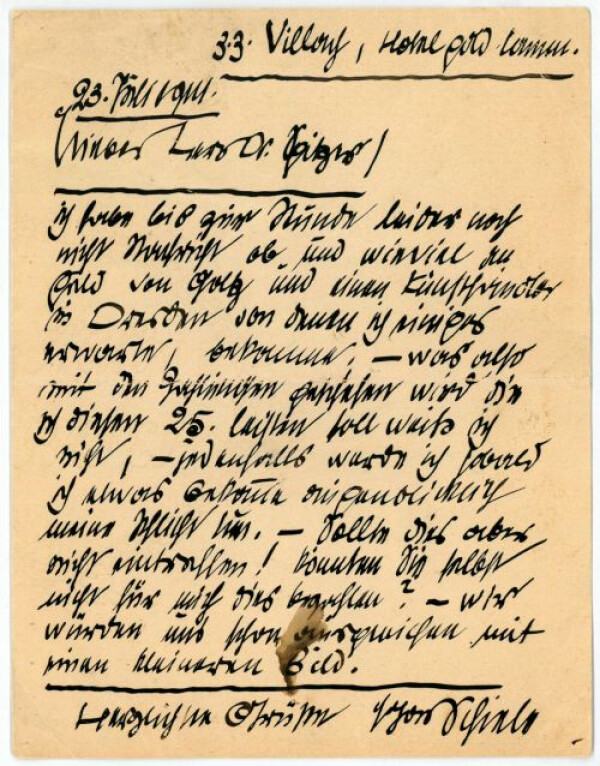 z.Z. Villach, Hotel gold. Lamm.
23. August.
Lieber Herr Dr. Spitzer!
ich habe bis zur Stunde leider noch
nicht Nachricht ob und wieviel an
Geld von Goltz und einen Kunsthändler
in Dresden von denen ich einiges
erwarte, bekomme. – was also
mit den Zahlungen geschehen wird die
ich diesen 25. leisten soll weiß ich
nicht, – jedenfalls werde ich sobald
ich etwas bekomme augenblicklich
meine Pflicht tun. – Sollte dies aber
nicht eintreffen! könnten Sie selbst
nicht für mich dies bezahlen? – wir
würden uns schon ausgleichen mit
einen kleineren Bild.
Herzlichste Grüße Ihr Schiele